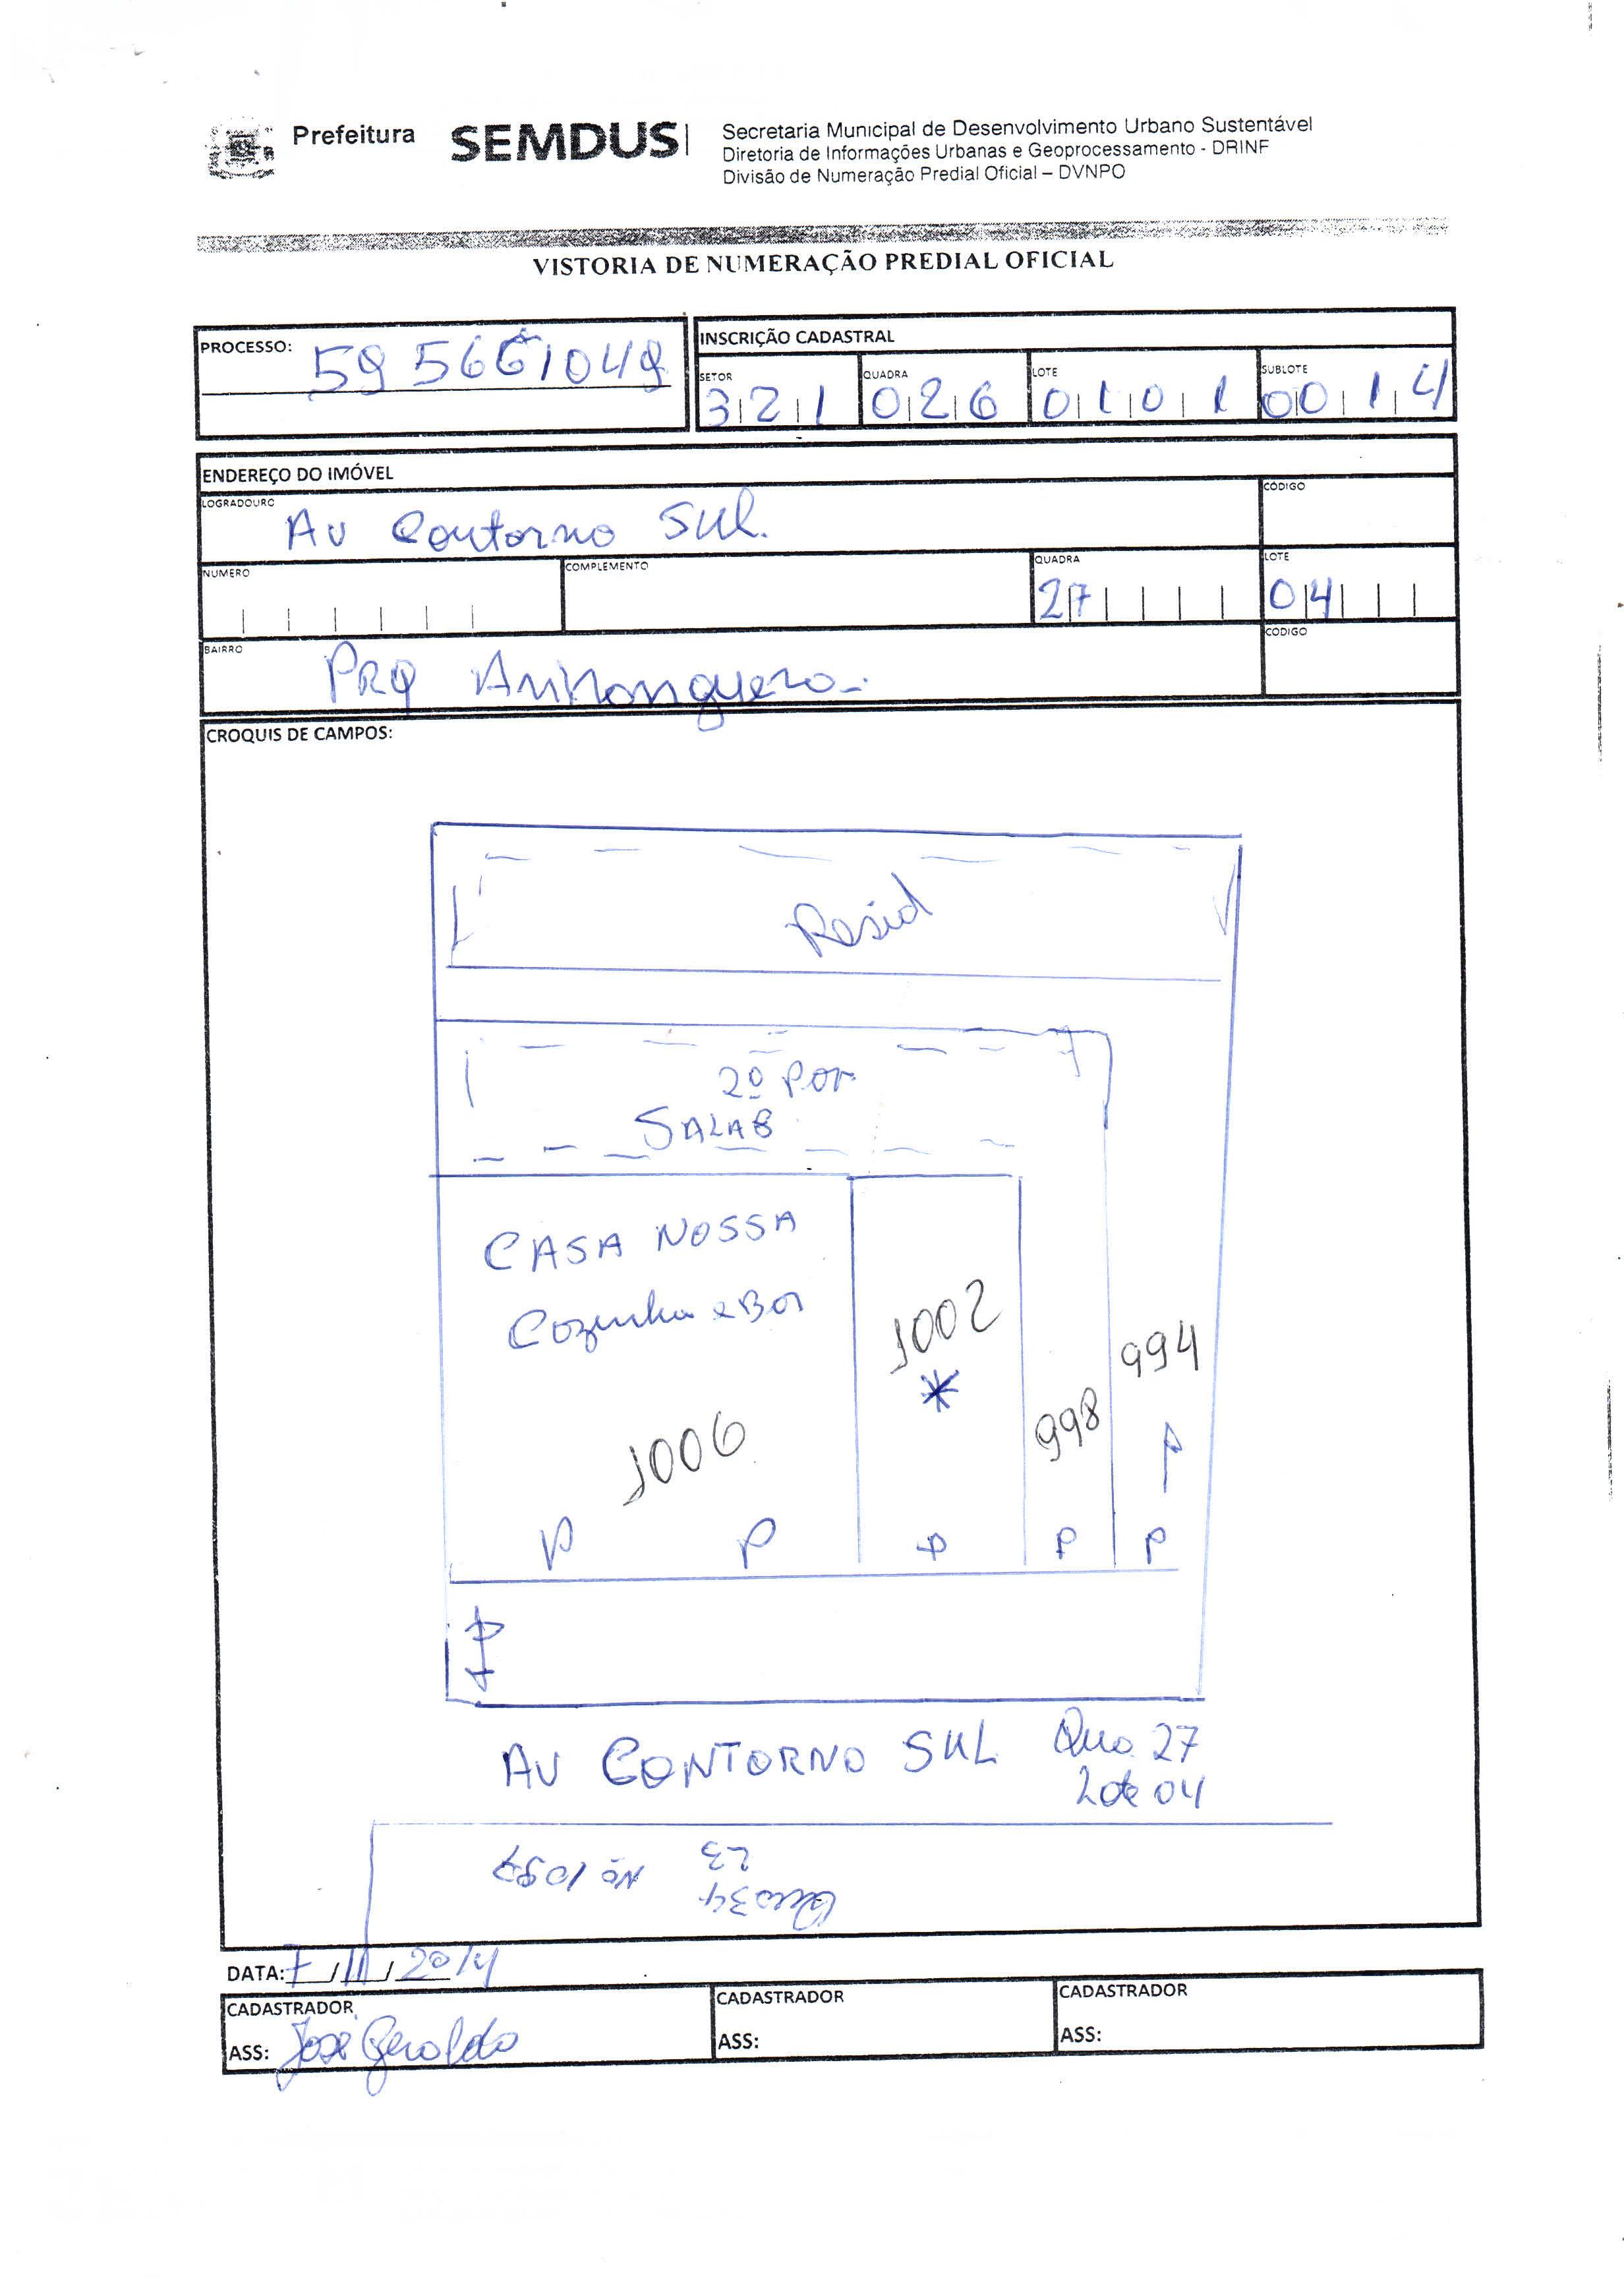 Prefeitura SEMDUS
Secretaria Municipal de Desenvolvimento Urbano Sustentável
Diretoria de Informações Urbanas e Geoprocessamento - DRINF
Divisão de Numeração Predial Oficial – DVNPO
VISTORIA DE NUMERAÇÃO PREDIAL OFICIAL
PROCESSO:
INSCRIÇÃO CADASTRAL
SETOR QUADRA LOTE SUBLOTE
321 026 0101 0014
ENDEREÇO DO IMÓVEL
LOGRADOURO Av Contorno Sul. CÓDIGO
NUMERO COMPLEMENTO QUADRA 27 LOTE 04
BAIRRO PRQ CÓDIGO
CROQUIS DE CAMPOS:
Resid
2º Pav
SALAS
CASA NOSSA
Cozinha e Bar
1002
*
994
998
1006
P P P P P
AV CONTORNO SUL Qua 27
Lote 04
Qua 34
L3
Nº
DATA: 7/11/2014
CADASTRADOR CADASTRADOR CADASTRADOR
ASS: José Geraldo ASS: ASS: